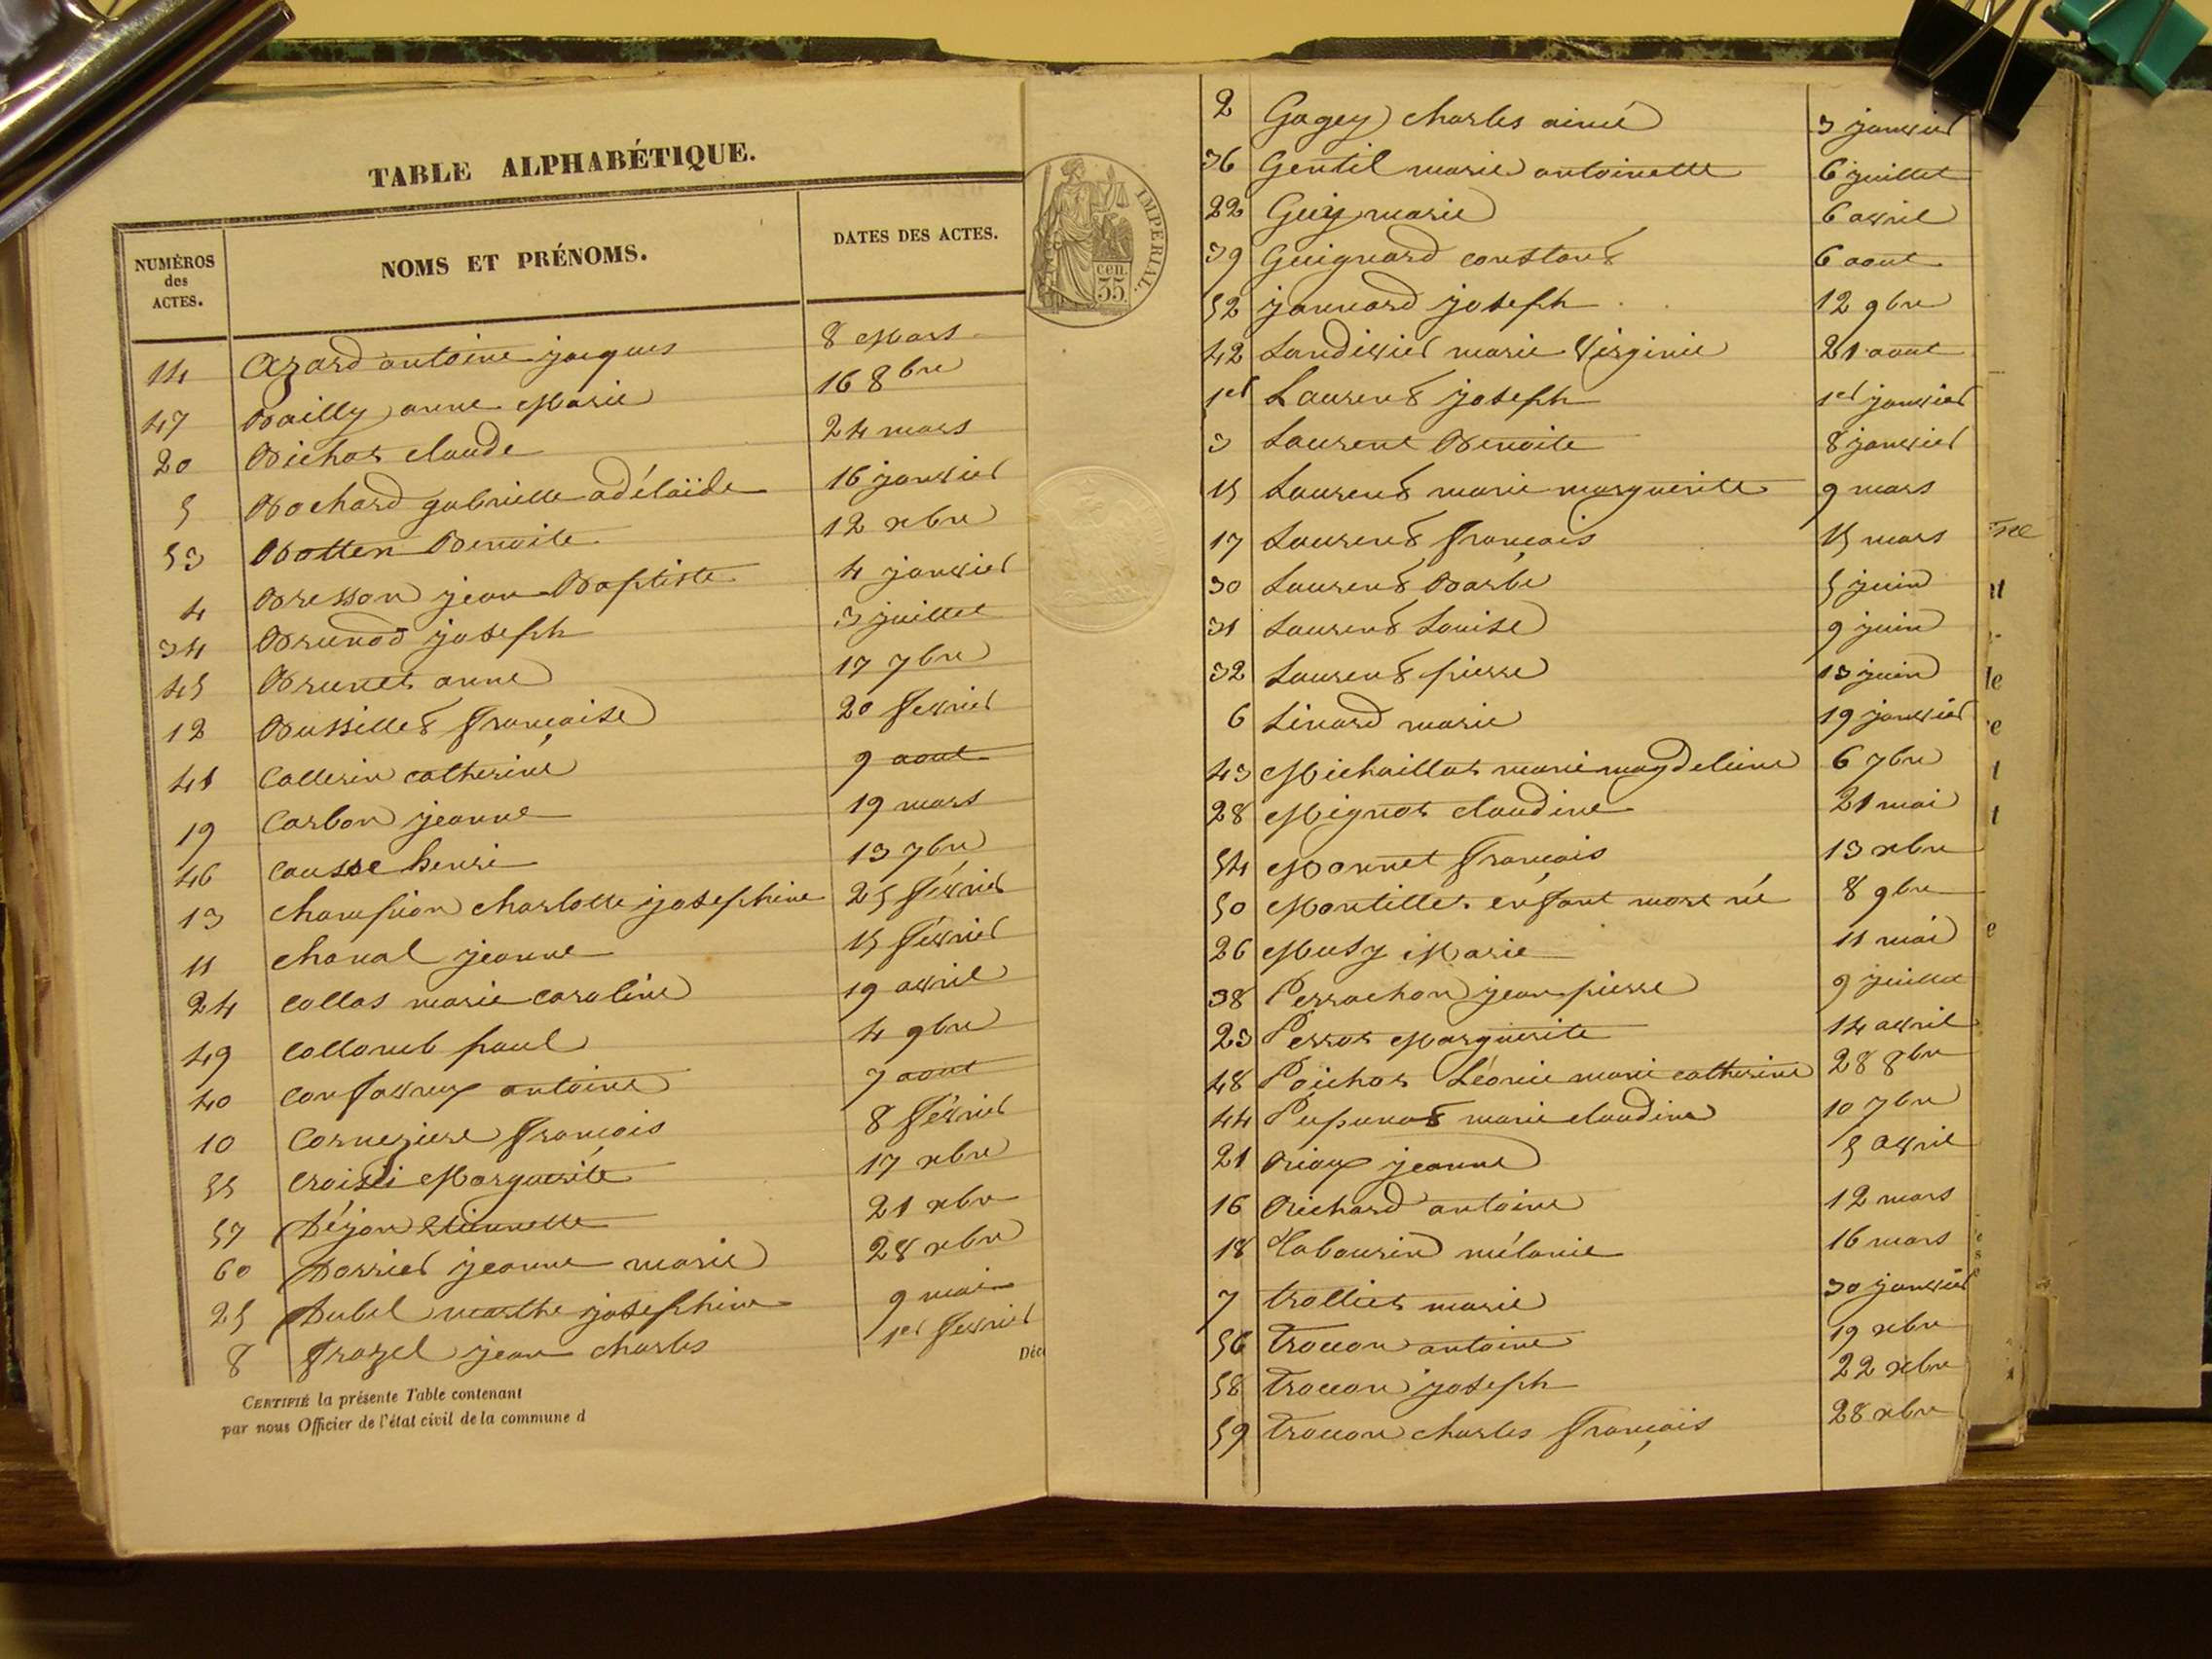 TABLE ALPHABÉTIQUE.
NUMÉROS des ACTES. NOMS ET PRÉNOMS. DATES DES ACTES.
14 Azard antoine jacques 8 Mars
47 Bailly anne Marie 16 8bre
20 Bichat claude 24 mars
5 Bochard gabrielle adélaïde 16 janvier
53 Botten Benoite 12 xbre
4 Bresson jean Baptiste 4 janvier
34 Brunod joseph 3 juillet
45 Brunet anne 17 7bre
12 Bussillet françoise 20 fevrier
41 Callerin catherine 9 aout
19 Carbon jeanne 19 mars
46 causse henri 13 7bre
13 champion charlotte josephine 25 février
11 chanal jeanne 15 février
24 collas marie caroline 19 avril
49 colloneb paul 4 9bre
40 confavreux antoine 7 aout
10 Cornezieu françois 8 février
55 Croisi Marguerite 17 xbre
57 Déjan Etiennette 21 xbre
60 Dorrier jeanne marie 28 xbre
25 Dubel marthe josephine 9 mai
8 frazel jean charles 1er fevrier
CERTIFIÉ la présente Table contenant
par nous Officier de l'état civil de la commune d
IMPERIAL.
35 cen
2 Gagey charles aimé 3 janvier
36 Gentil marie antoinette 6 juillet
22 Guy marie 6 avril
39 Guignard constant 6 aout
52 jannard joseph 12 9bre
42 Landivier marie Virginie 21 aout
1er Laurent joseph 1er janvier
3 Laurent Benoite 8 janvier
15 Laurent marie marguerite 9 mars
17 Laurent françois 15 mars
30 Laurent Barbe 5 juin
31 Laurent Louise 9 juin
32 Laurent pierre 13 juin
6 Linard marie 19 janvier
43 Michaillat marie magdeleine 6 7bre
28 Mignot claudine 21 mai
54 Monnet françois 13 xbre
50 Montillet enfant mort né 8 9bre
26 Musy Marie 11 mai
38 Perrachon jean pierre 9 juillet
23 Perrot Marguerite 14 avril
48 Poichot Léonie marie catherine 28 8bre
44 Pupunat marie claudine 10 7bre
21 Rioux jeanne 5 avril
16 Richard antoine 12 mars
18 Tabourin mélanie 16 mars
7 trolliet marie 30 janvier
56 Troccon antoine 19 xbre
58 Troccon joseph 22 xbre
59 Troccon charles françois 28 xbre